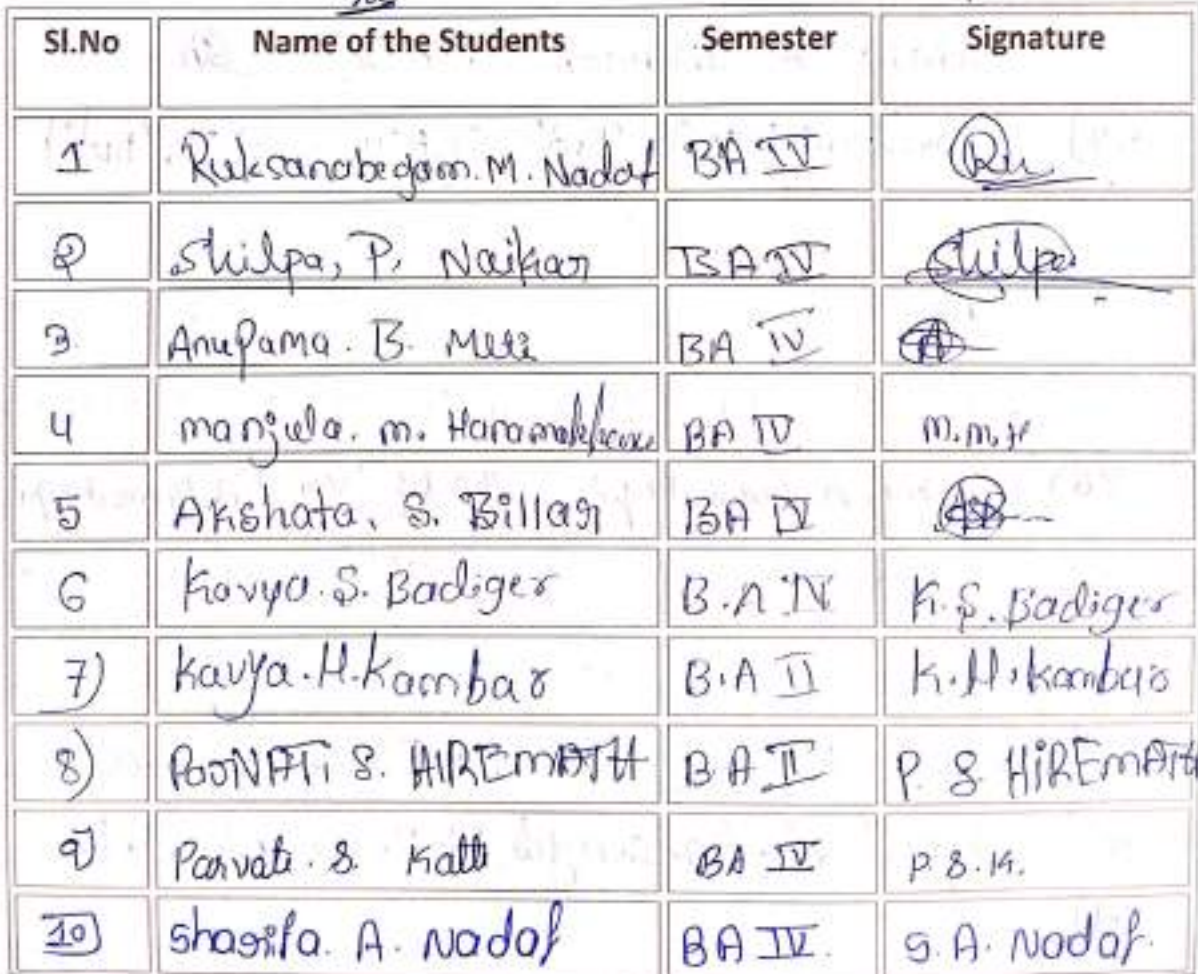 Sl.No Name of the Students Semester Signature
1 Ruksanabegam. M. Nadaf BA IV Ru
2 Shilpa, P. Naikar BA IV Shilpa
3 Anupama. B. Meti BA IV A
4 manjula. m. BA IV m.m.H
5 Akshata. S. Billar BA IV
6 Kavya. S. Badiger B.A IV K.S. Badiger
7) Kavya. H. Kambar B.A II K.H. Kambar
8) S. HIREmATH BA II P. S HiREmATH
9) Parvati. S. Katti BA IV P.S.K.
10) Sharifa. A. Nadaf BA IV. S. A. Nadaf.